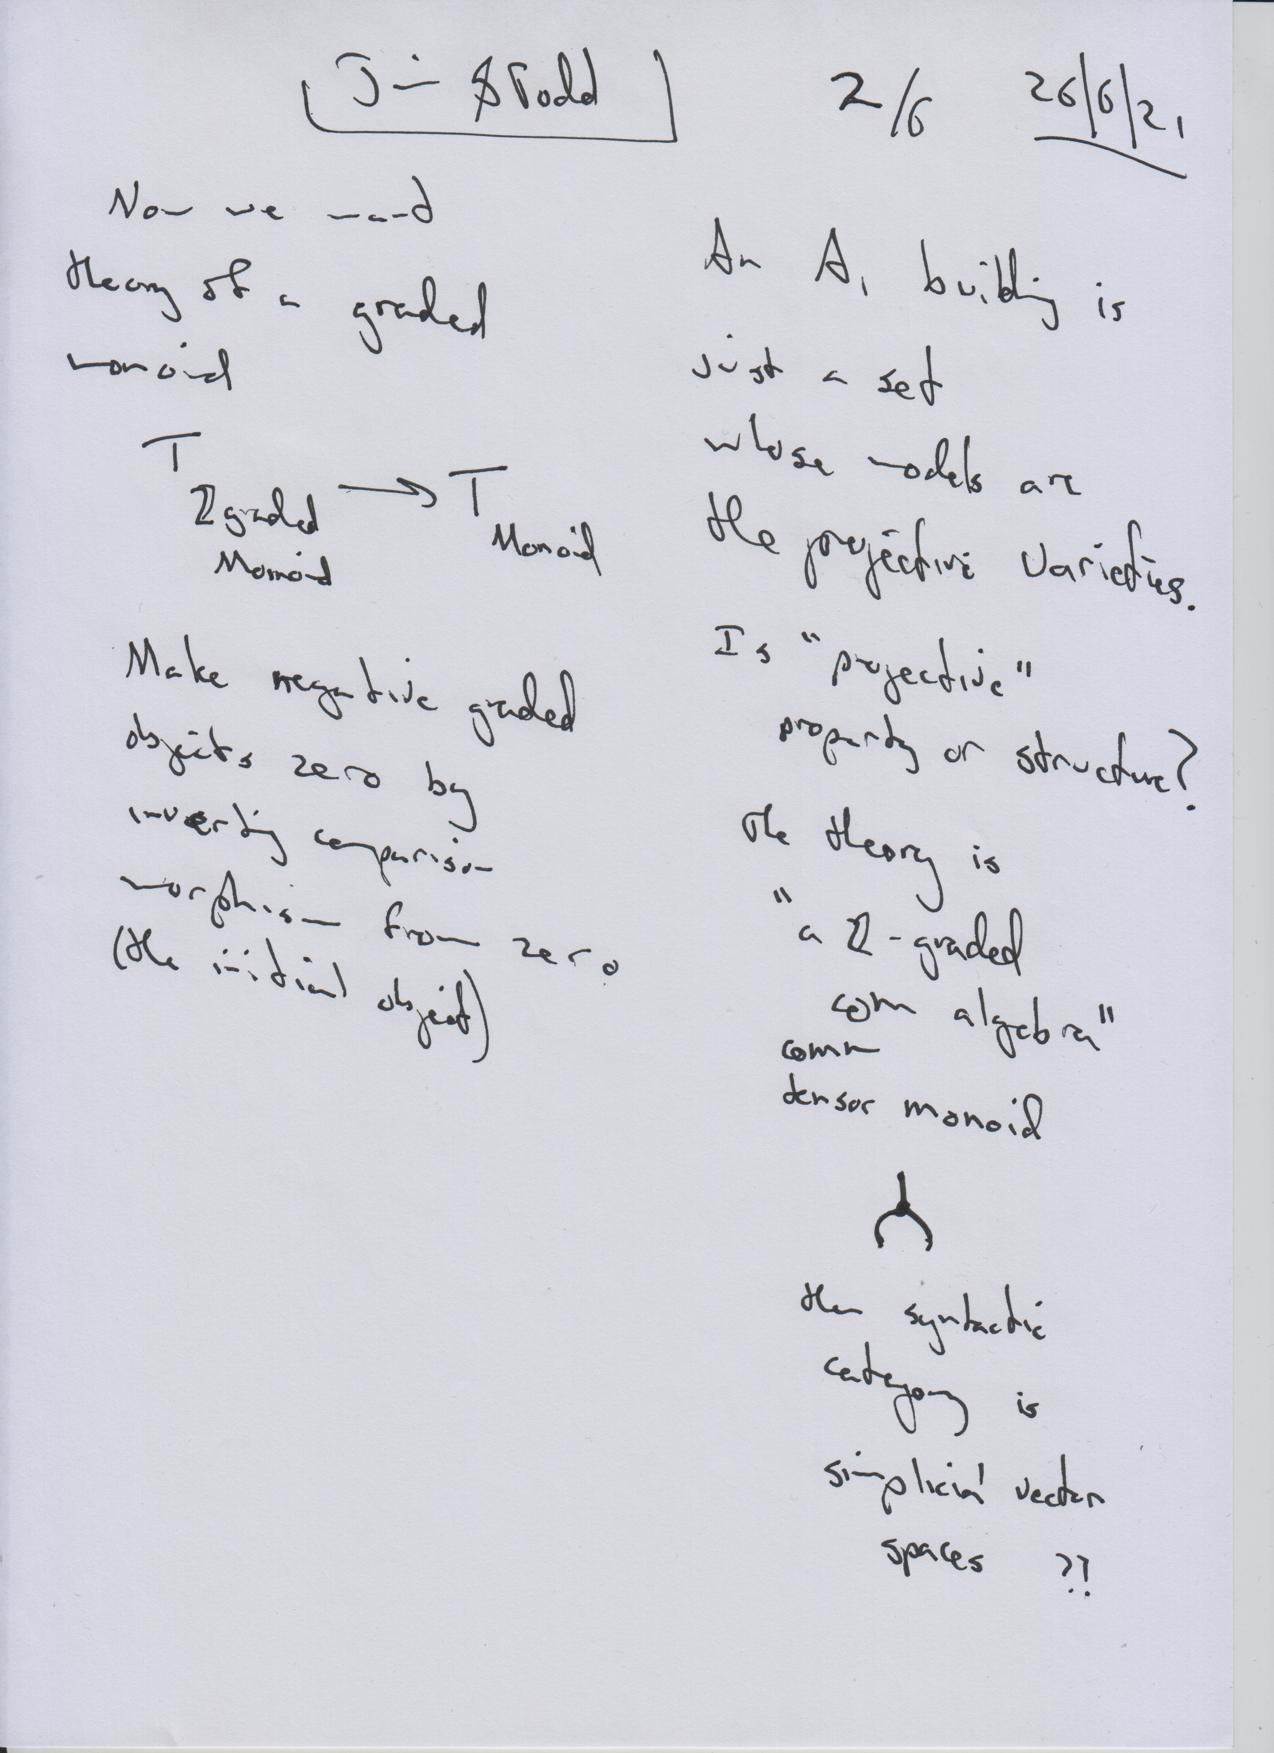 Jim & Todd
2/6
26/6/21
Now we want
theory of a graded
monoid
T ℤ graded Monoid → T Monoid
Make negative graded
objects zero by
inverting comparison
morphism from zero
(the initial object)
An A₁ building is
just a set
whose models are
the projective varieties.
Is "projective"
property or structure?
The theory is
"a ℤ-graded
com algebra"
comm
tensor monoid
the syntactic
category is
simplicial vector
spaces ?!